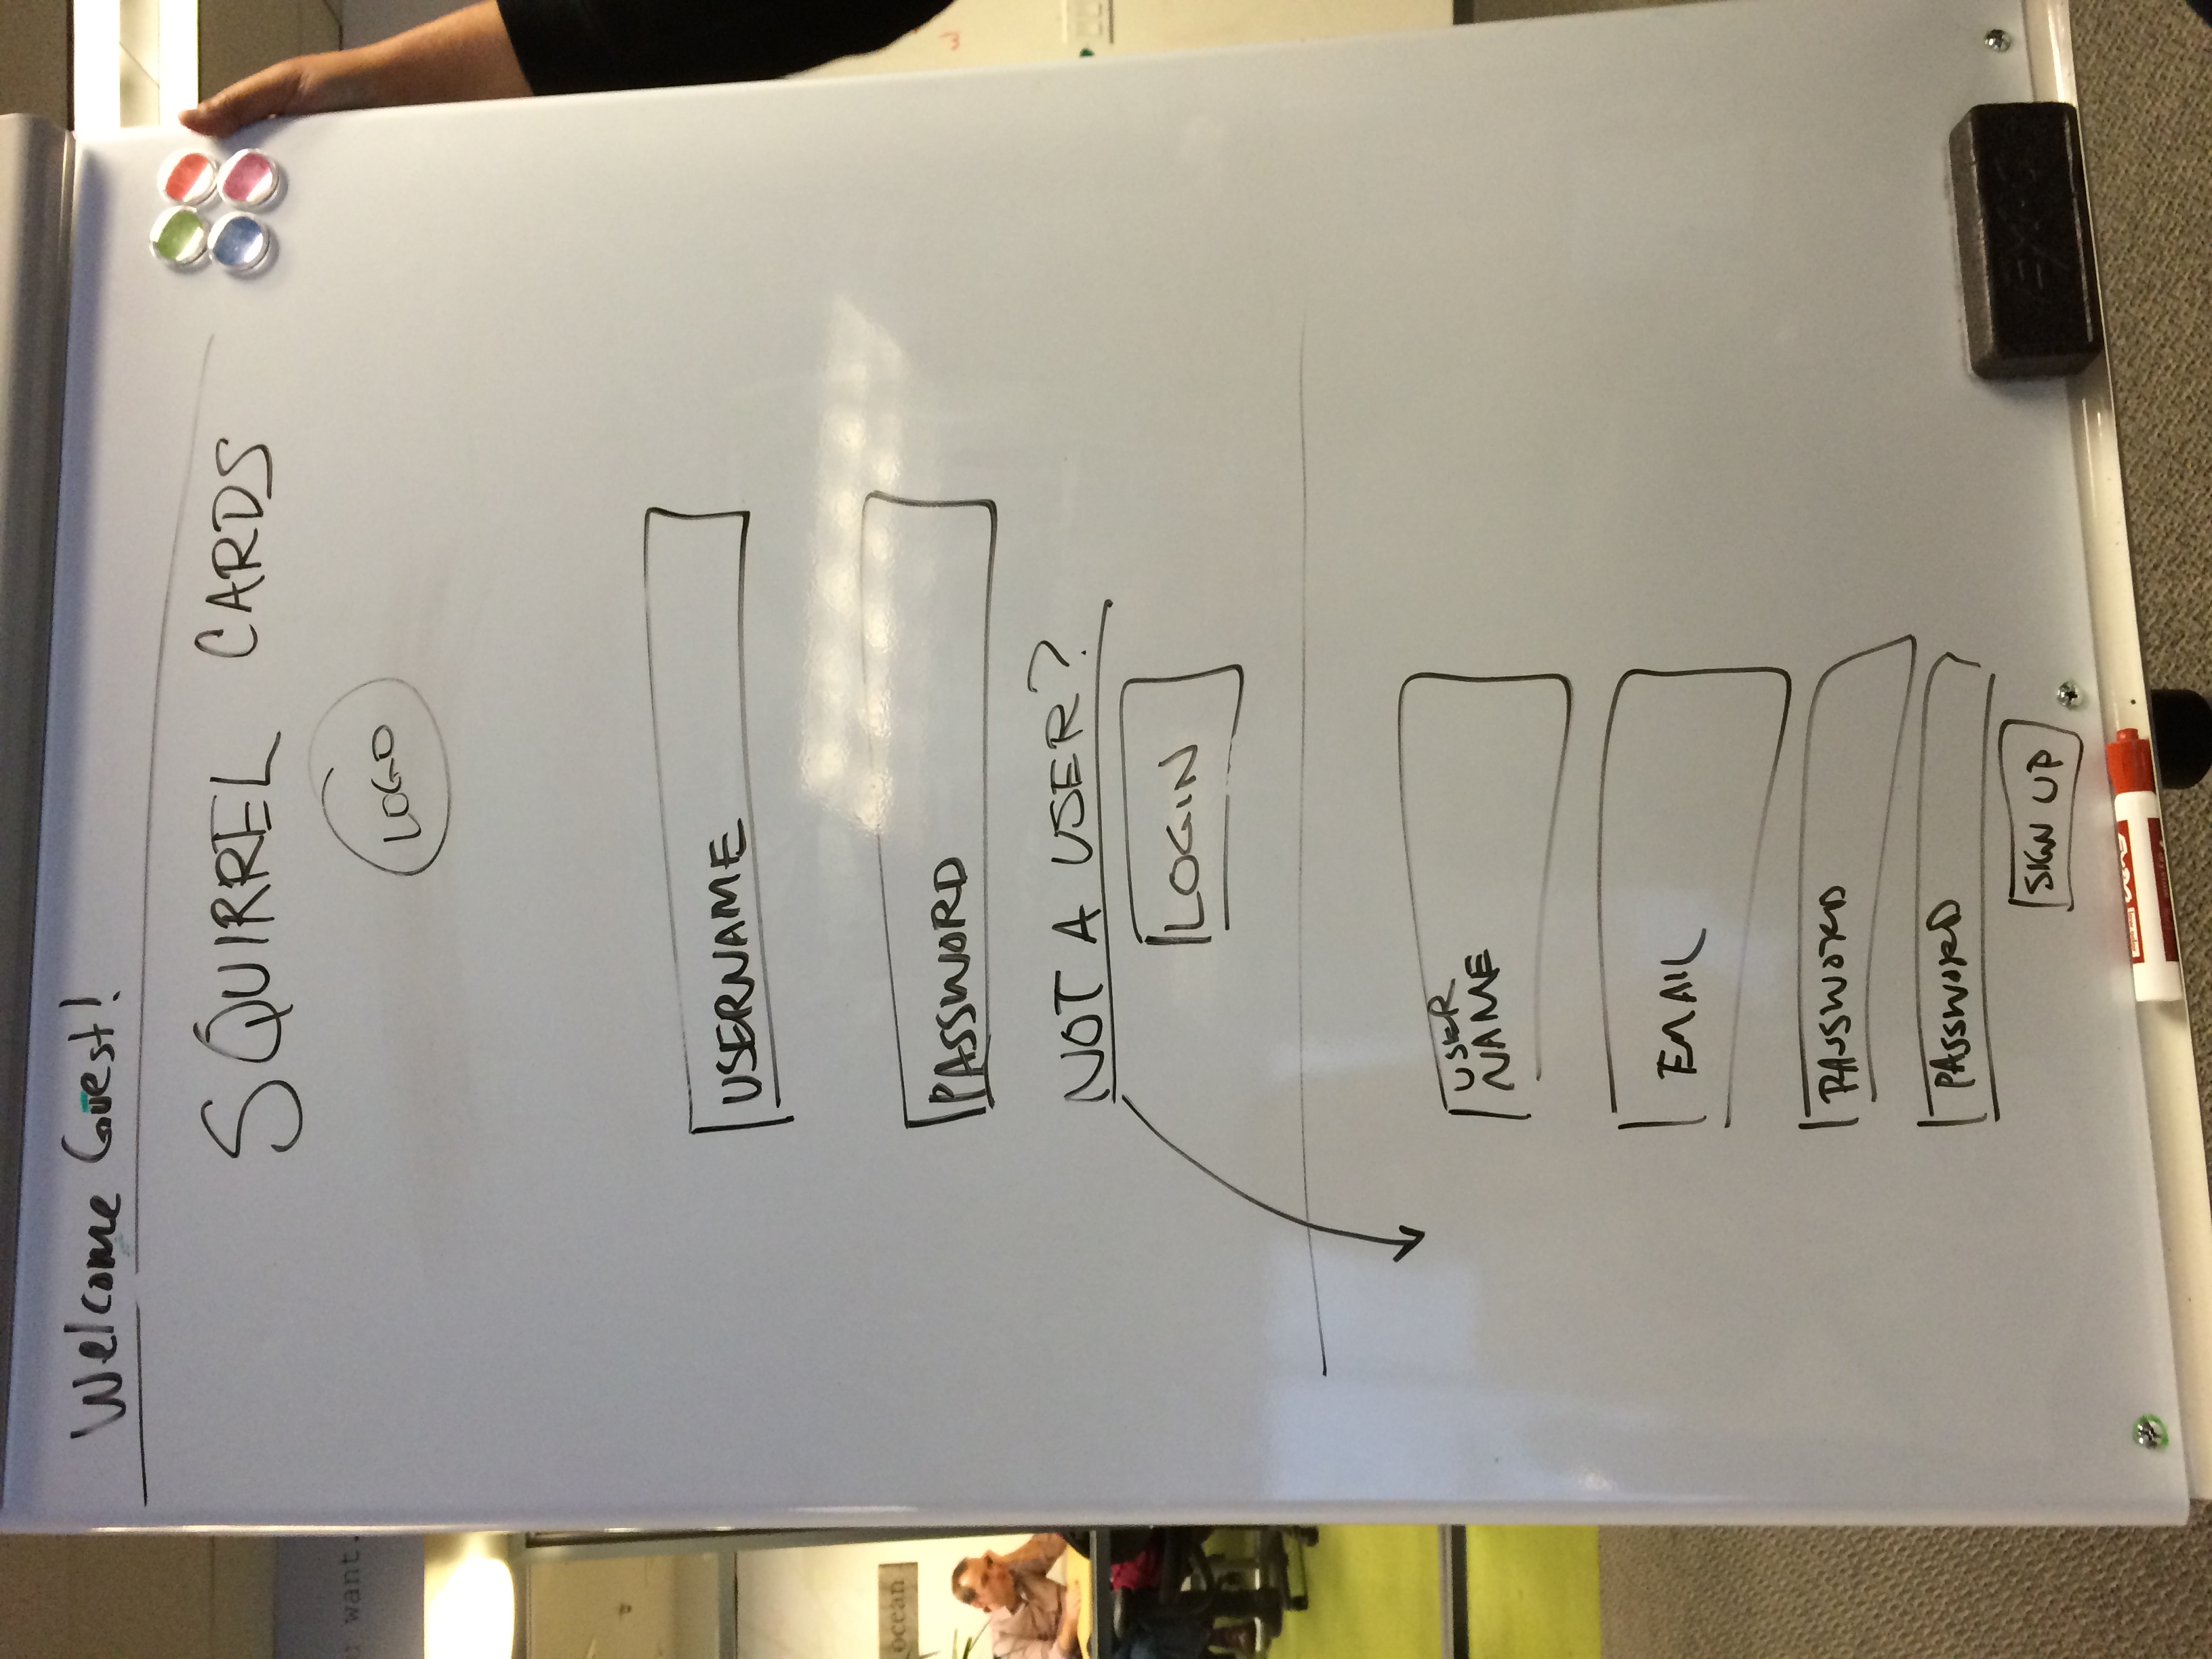 Welcome Guest!
SQUIRREL CARDS
LOGO
want.
USERNAME
ocean
PASSWORD
NOT A USER?
LOGIN
USER
NAME
EMAIL
PASSWORD
PASSWORD
SIGN UP
EXPO